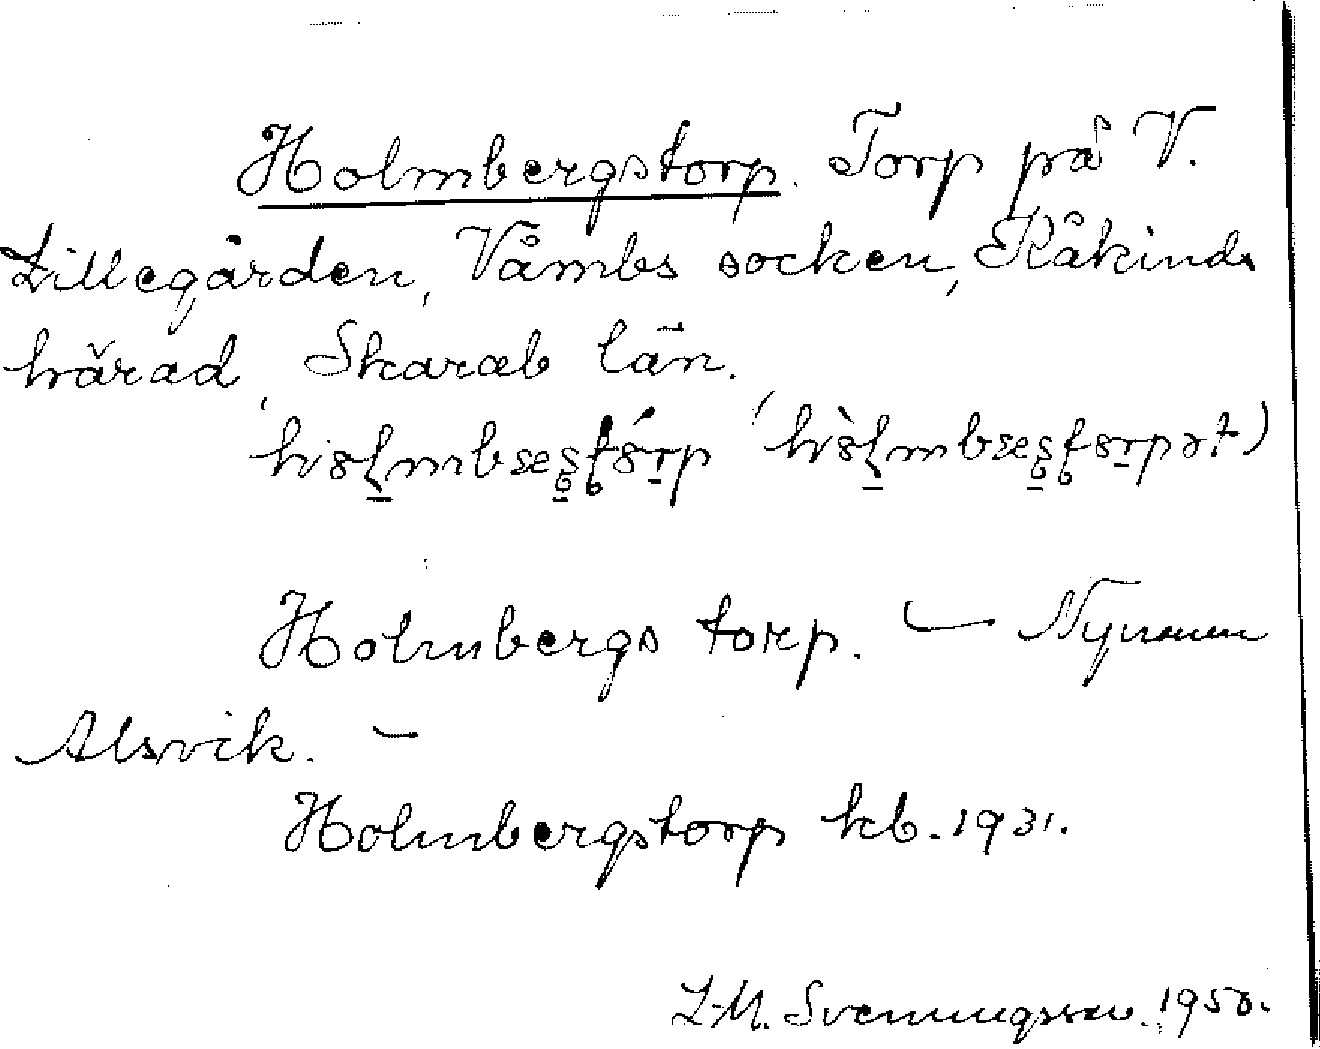 Holmbergstorp. Torp på V.
Lillegården, Våmbs socken, Kåkinds
härad, Skarab län.
Holmbergs torp. — Nyman
Alsvik. —
Holmbergstorp kb. 1931.
L-M. Svenningsson. 1950.